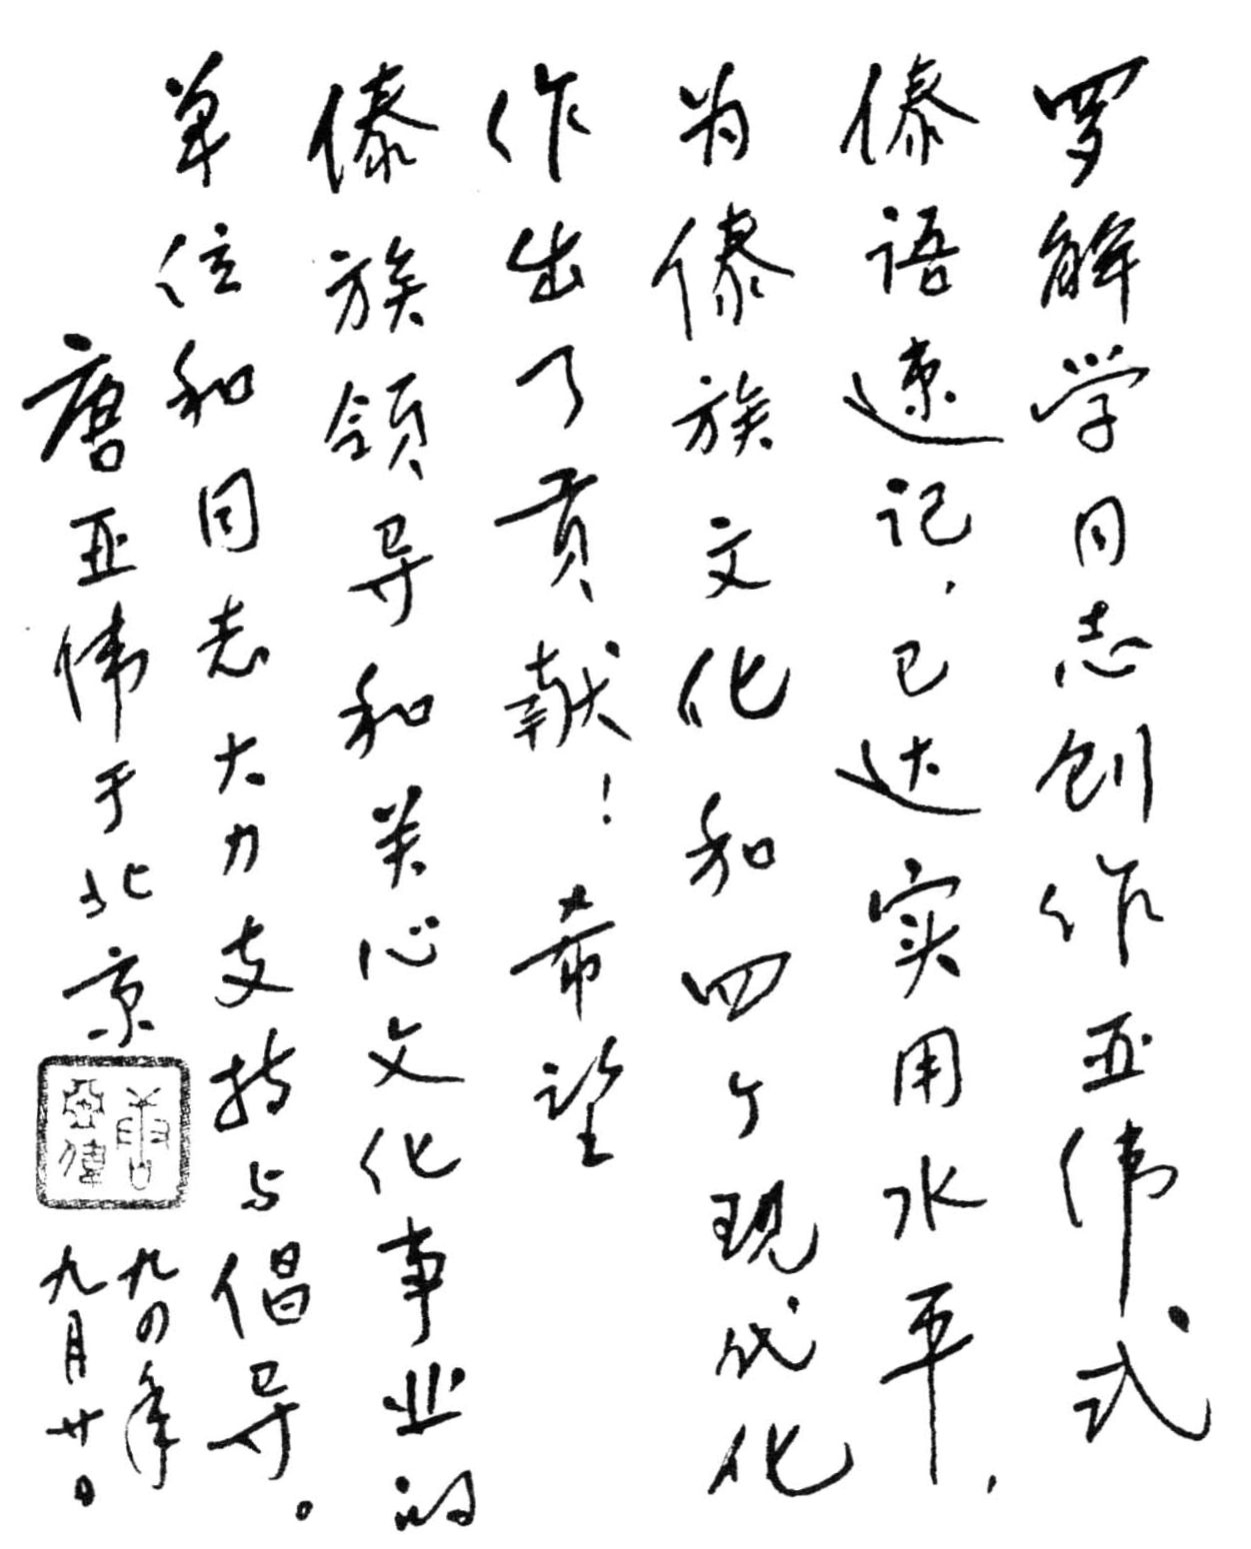 罗解学同志创作亚伟式
傣语速记，已达实用水平，
为傣族文化和四个现代化
作出了贡献！希望
傣族领导和关心文化事业的
单位和同志大力支持与倡导。
唐亚伟于北京
唐亞偉
九四年
九月廿日